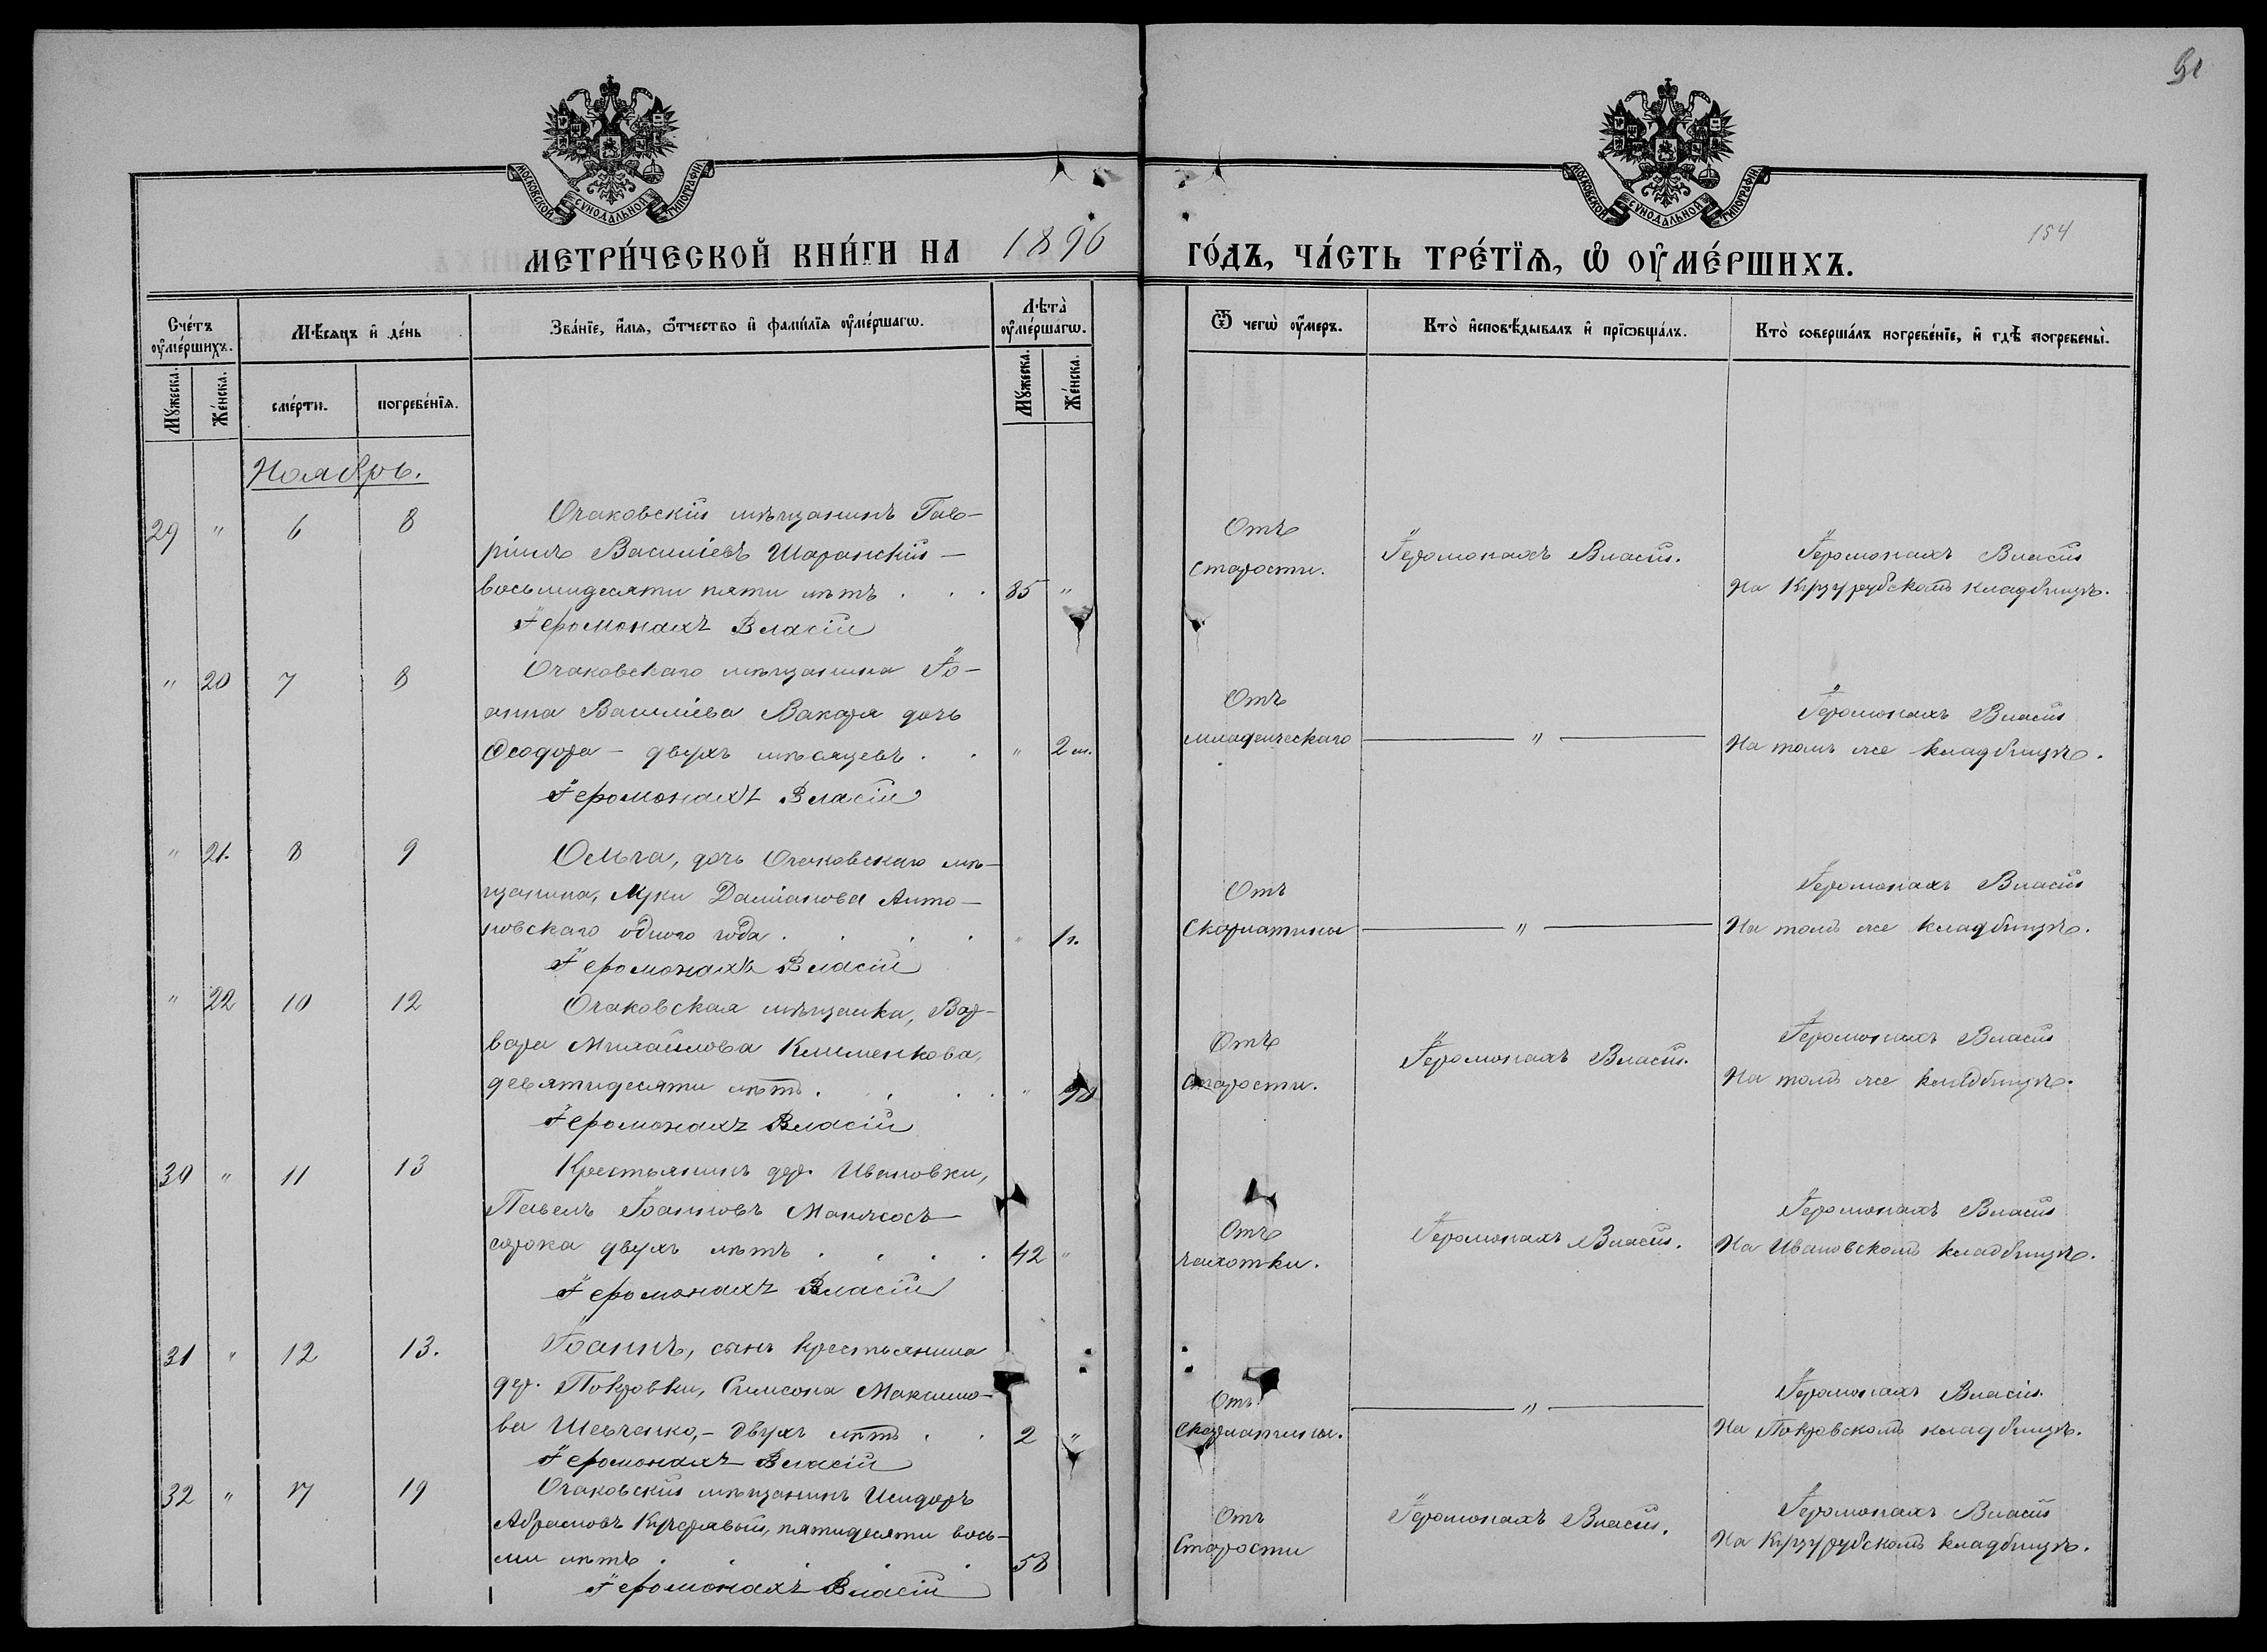 91
154
МОСКОВСКОЙ СѴНОДАЛЬНОЙ ТИПОГРАФІИ.
МОСКОВСКОЙ СѴНОДАЛЬНОЙ ТИПОГРАФІИ.
МЕТРИ́ЧЕСКОЙ КНИ́ГИ НА 1896 ГО́ДЪ, ЧА́СТЬ ТРЕ́ТЇѦ, Ѡ҆ ОУ҆МЕ́РШИХЪ.
Сче́тъ оу҆ме́ршихъ.
Мѣ́сяцъ и҆ де́нь
Зва́нїе, и҆́мѧ, ѻ҆́тчество и҆ фами́лїѧ оу҆ме́ршагѡ.
Лѣта̀ оу҆ме́ршагѡ.
Ѿ чегѡ̀ оу҆́меръ.
Кто̀ и҆сповѣ́дывалъ и҆ прїѡбща́лъ.
Кто̀ соверша́лъ погребе́нїе, и҆ гдѣ̀ погребены̀.
Мꙋ́жеска. Же́нска.
сме́рти. погребе́нїѧ.
Мꙋ́жеска. Же́нска.
Ноябрь.
29 " 6 8 Очаковскій мѣщанинъ Гав-
ріилъ Василіевъ Шаранскій —
восьмидесяти пяти лѣтъ . . . 85 "
Іеромонахъ Власій
Отъ
старости.
Іеромонахъ Власій.
Іеромонахъ Власій
На Куцурубскомъ кладбищѣ.
" 20 7 8 Очаковскаго мѣщанина Іо-
анна Василіева Вакаря дочь
Ѳеодора — двухъ мѣсяцевъ . . " 2 м.
Іеромонахъ Власій
Отъ
младенческаго
"
Іеромонахъ Власій
На томъ же кладбищѣ.
" 21. 8 9 Ольга, дочь Очаковскаго мѣ-
щанина, Луки Даміанова Анто-
новскаго одного года . . . . " 1 г.
Іеромонахъ Власій
Отъ
Скарлатины
"
Іеромонахъ Власій
На томъ же кладбищѣ.
" 22 10 12 Очаковская мѣщанка, Вар-
вара Михайлова Клименкова,
девятидесяти лѣтъ . . . . " 90
Іеромонахъ Власій
Отъ
старости.
Іеромонахъ Власій.
Іеромонахъ Власій
На томъ же кладбищѣ.
30 " 11 13 Крестьянинъ дер. Ивановки,
Павелъ Іоанновъ
сорока двухъ лѣтъ . . . . 42 "
Іеромонахъ Власій
Отъ
чахотки.
Іеромонахъ Власій.
Іеромонахъ Власій
На Ивановскомъ кладбищѣ.
31 " 12 13. Іоаннъ, сынъ крестьянина
дер. Покровки, Симеона Максимо-
ва Шевченко, — двухъ лѣтъ . . 2 "
Іеромонахъ Власій
Отъ
Скарлатины.
"
Іеромонахъ Власій.
На Покровскомъ кладбищѣ.
32 " 17 19 Очаковскій мѣщанинъ Исидоръ
Абрамовъ Кучерявый, пятидесяти вось-
ми лѣтъ . . . . . 58
Іеромонахъ Власій
Отъ
Старости
Іеромонахъ Власій.
Іеромонахъ Власій
На Куцурубскомъ кладбищѣ.